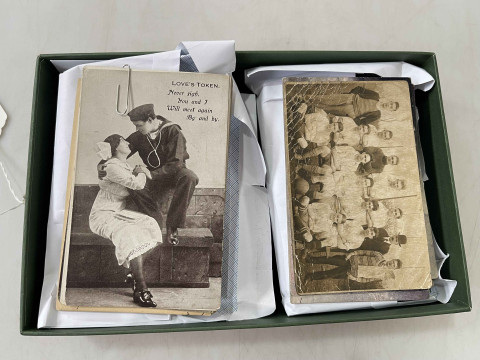 LOVE'S TOKEN.
Never sigh,
You and I
Will meet again
By and by.